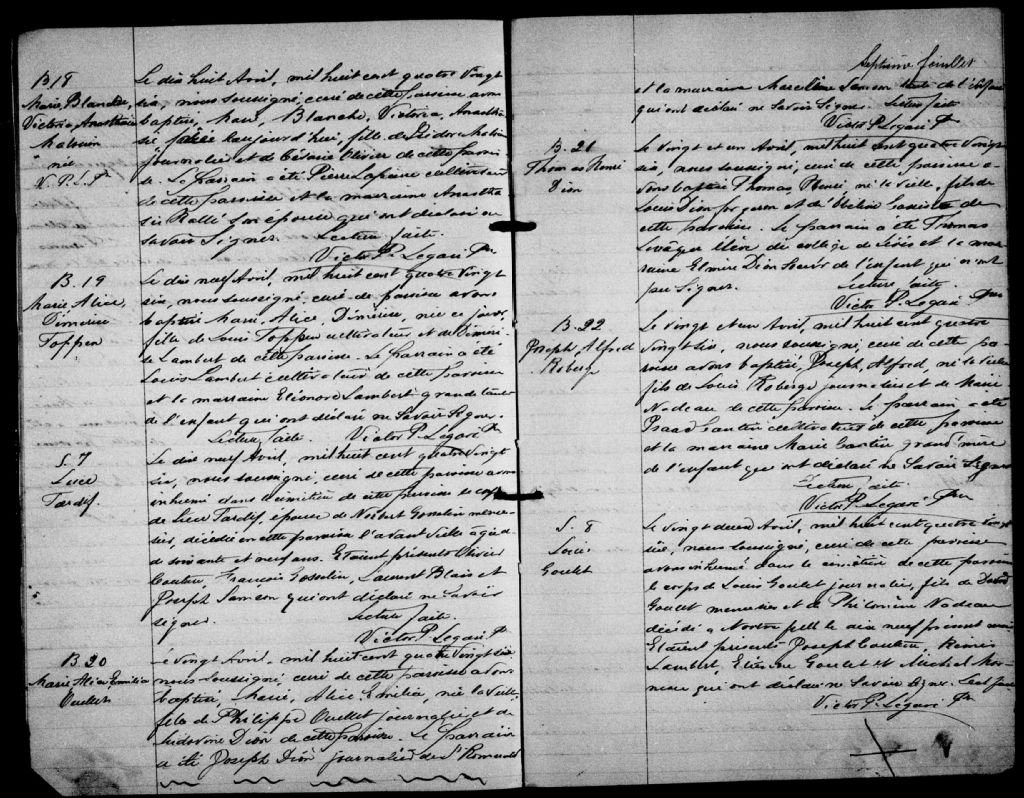 B 18
Marie Blanche,
Victoria, Anasthasie
née
N. P. L. P
Le dix huit Avril, mil huit cent quatre vingt
six, nous soussigné, curé de cette paroisse avons
baptisé Marie, Blanche, Victoria, Anastha
sie, née aujourd'hui, fille de Isidore
journalier et de Olivier de cette parois
se. Le parrain a été Pierre cultivateur
de cette paroisse et la marraine Anastha
sie son épouse qui ont déclaré ne
savoir signer. Lecture faite.
Victor P. Légaré Ptre
B. 19
Marie Alice,
Dimérise
Toppen
Le dix neuf Avril, mil huit cent quatre vingt
six, nous soussigné, curé de paroisse avons
baptisé Marie, Alice, Dimérise, née ce jour,
fille de Louis Toppen cultivateur et de Diméri
se Lambert de cette paroisse. Le parrain a été
Louis Lambert cultivateur de cette paroisse
et la marraine Eléonore Lambert grande tante
de l'enfant qui ont déclaré ne savoir signer.
Lecture faite. Victor P. Légaré Ptre
S. 7
Luce
Tardif.
Le dix neuf Avril, mil huit cent quatre vingt
six, nous soussigné, curé de cette paroisse avons
inhumé dans le cimetière de cette paroisse le corps
de Luce Tardif, épouse de Norbert Gosselin menui
sier, décédée en cette paroisse l'avant veille agée
de soixante et neuf ans. Etaient présents Olivier
Couture, François Gosselin, Laurent Blais et
Joseph Samson qui ont déclaré ne savoir
signer. Lecture faite.
Victor P. Légaré Ptre
B. 20
Marie Alice Emilia
Ouellet
Le vingt Avril, mil huit cent quatre vingt six
nous soussigné, curé de cette paroisse avons
baptisé, Marie, Alice Emilia, née la veille
fille de Philippe Ouellet journalier et de
Ludivine Dion de cette paroisse. Le parrain
a été Joseph Dion journalier de St Romuald
Septième feuillet
et la marraine Marcelline Samson tante de l'enfant
qui ont déclaré ne savoir signer. Lecture faite
Victor P. Légaré Ptre
B. 21
Thomas Henri
Dion
Le vingt et un Avril, mil huit cent quatre vingt
six, nous soussigné, curé de cette paroisse a-
vons baptisé Thomas, Henri, né la veille, fils de
Louis Dion forgeron et de de
cette paroisse. Le parrain a été Thomas
Lévêque élève du collège de Lévis et la mar
raine Elmire Dion soeur de l'enfant qui ont
pu signer. Lecture faite.
Victor P. Légaré Ptre
B. 22
Joseph, Alfred
Roberge
Le vingt et un Avril, mil huit cent quatre
vingt six, nous soussigné, curé de cette pa-
roisse avons baptisé, Joseph, Alfred, né la veille
fils de Louis Roberge journalier et de Marie
Nadeau de cette paroisse. Le parrain a été
Isaac cultivateur de cette paroisse
et la marraine Marie grand'mère
de l'enfant qui ont déclaré ne savoir signer
Lecture faite.
Victor P. Légaré Ptre
S. 8
Louis
Goulet
Le vingt deux Avril, mil huit cent quatre vingt
six, nous soussigné, curé de cette paroisse
avons inhumé dans le cimetière de cette paroisse
le corps de Louis Goulet journalier, fils de David
Goulet menuisier et de Philomène Nadeau
décédé a le dix neuf présent mois
Etaient présents Joseph Couture, Rémi
Lambert, Etienne Goulet et Michel
qui ont déclaré ne savoir signer. Lect faite
Victor P. Légaré Ptre